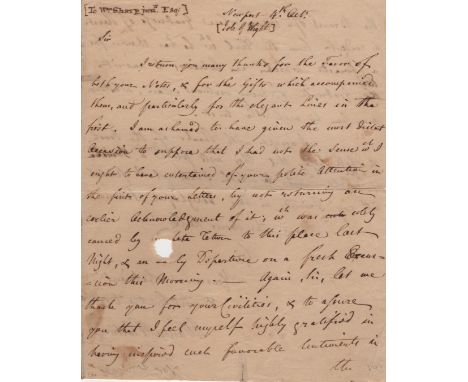 [To Wm Sharp junr. Esqr]
Newport 4th Octr.
[Isle of Wight]
Sir
I return you many thanks for the Favor of
both your Notes, & for the Gifts which accompanied
them, and particularly for the elegant Lines in the
first. I am ashamed to have given the most distant
Occasion to suppose that I had not the Sense wh. I
ought to have entertained of your polite Attention in
the first of your Letters, by not returning an
earlier Acknowledgment of it; wh. was solely
caused by late Return to this place last
Night, & an ly Departure on a fresh Excur-
-sion this Morning. — Again Sir, let me
thank you for your Civilities, & to assure
you that I feel myself highly gratified in
having inspired such favorable Sentiments in
the